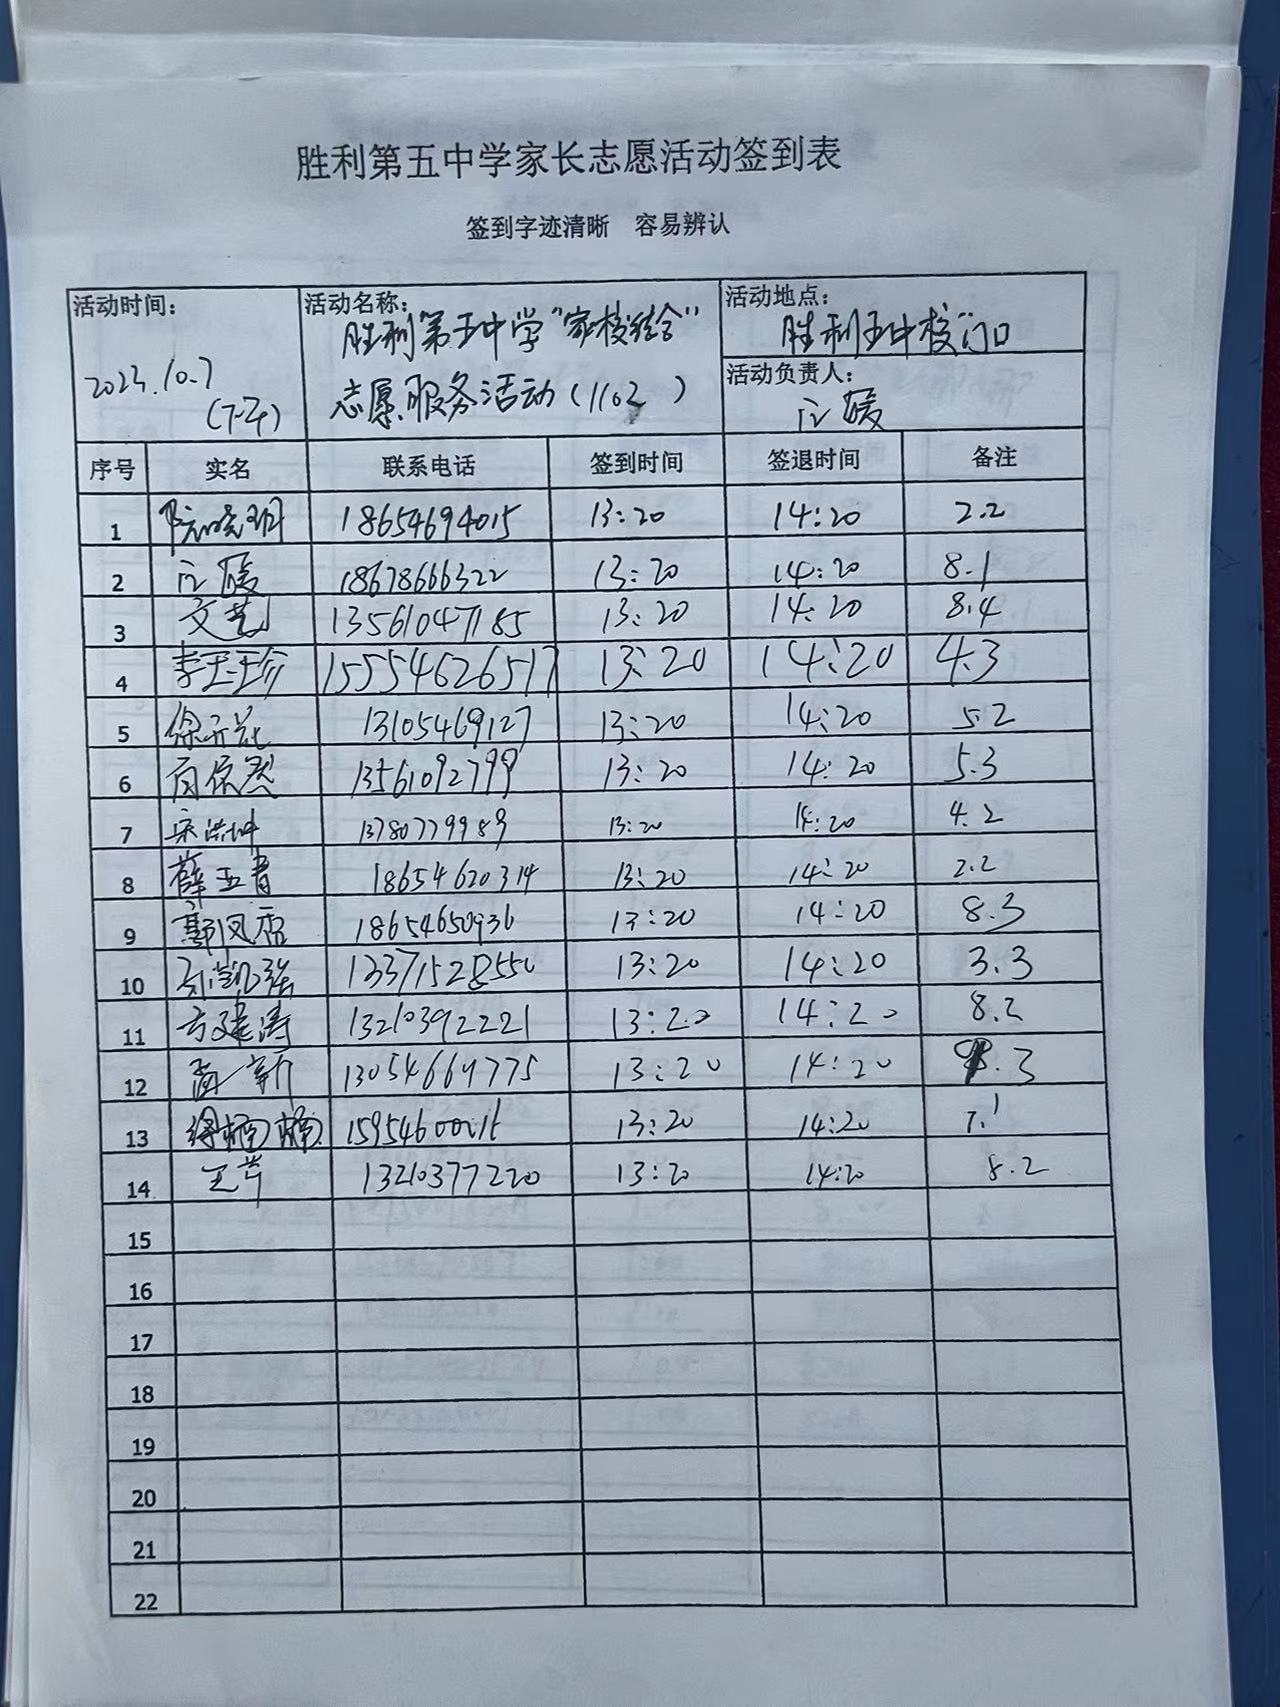 胜利第五中学家长志愿活动签到表
签到字迹清晰 容易辨认
活动时间：
2023.10.7
(下午)
活动名称：
胜利第五中学“家校结合”
志愿服务活动（1102）
活动地点：
胜利五中校门口
活动负责人：
序号 实名 联系电话 签到时间 签退时间 备注
1 18654694015 13:20 14:20 2.2
2 18678666322 13:20 14:20 8.1
3 文艺 13561047185 13:20 14:20 8.4
4 李玉珍 15554626517 13:20 14:20 4.3
5 13105469127 13:20 14:20 5.2
6 13561092799 13:20 14:20 5.3
7 宋洪坤 13780779989 13:20 14:20 4.2
8 薛玉青 18654620314 13:20 14:20 2.2
9 18654650936 13:20 14:20 8.3
10 孙凯强 13371528550 13:20 14:20 3.3
11 方建涛 13210392221 13:20 14:20 8.2
12 13054664775 13:20 14:20 8.3
13 13:20 14:20 7.1
14 王芹 13210377220 13:20 14:20 8.2
15
16
17
18
19
20
21
22